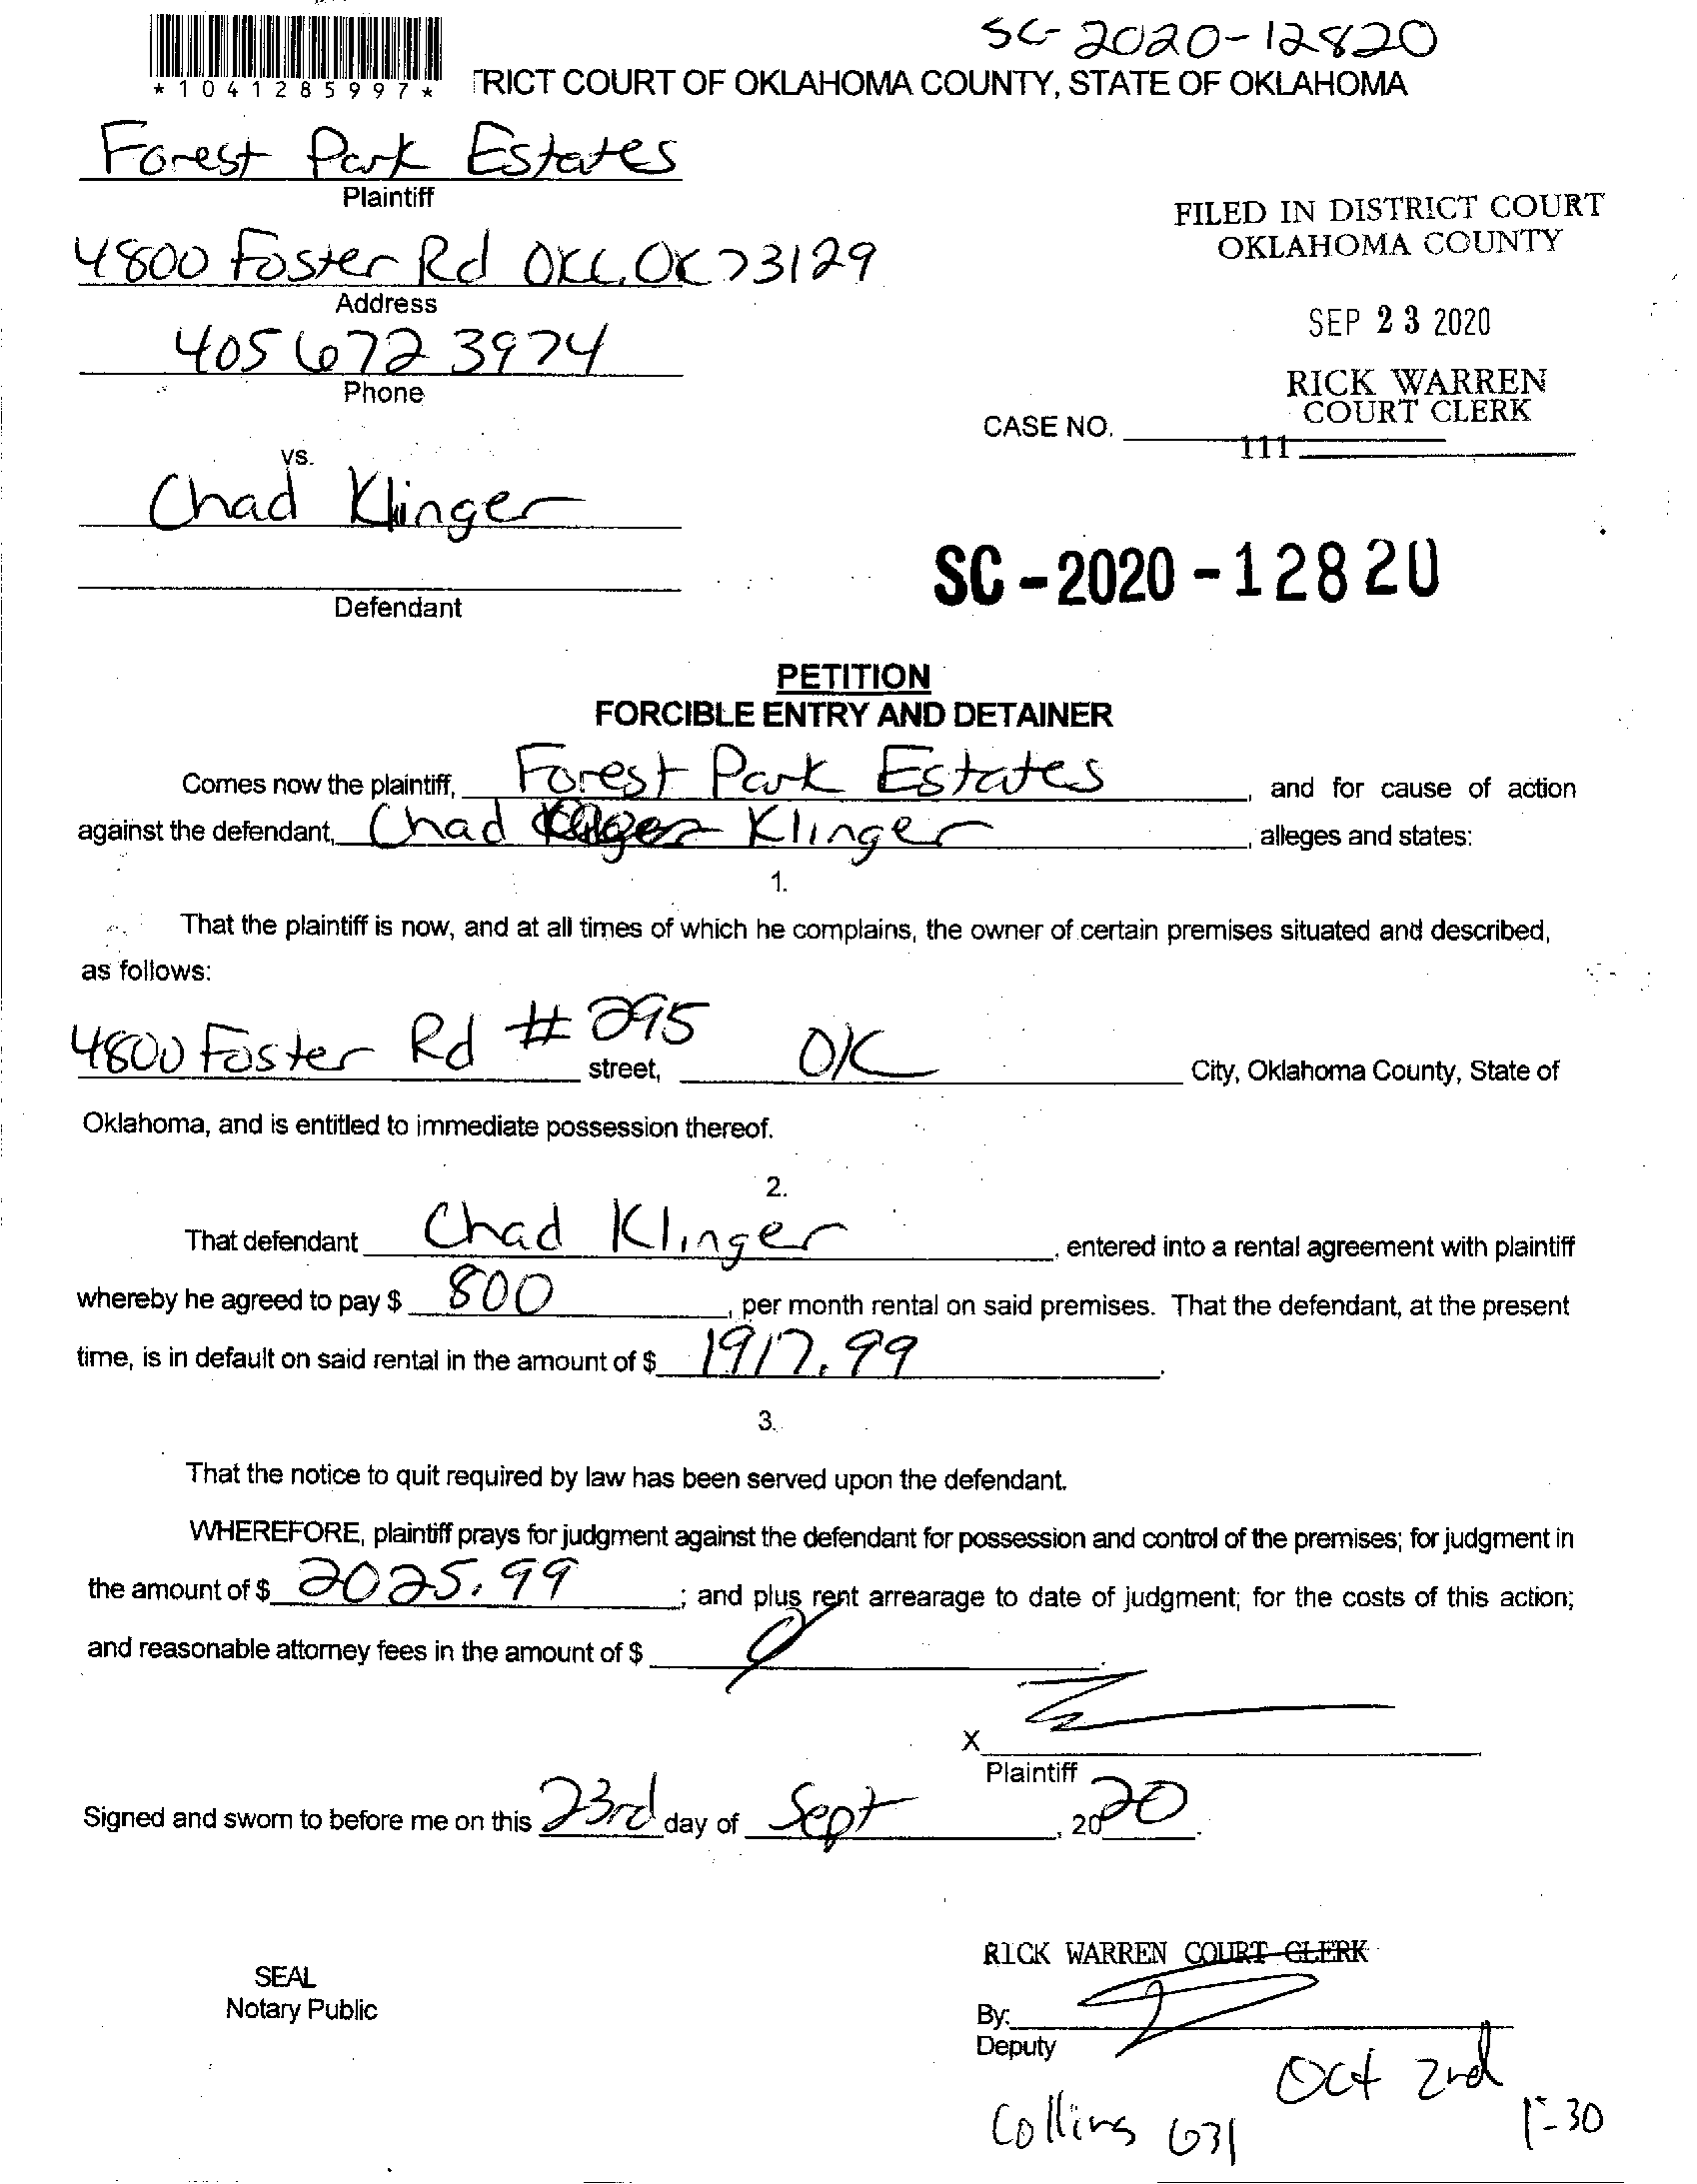 SC-2020-12820
*1041285997*
TRICT COURT OF OKLAHOMA COUNTY, STATE OF OKLAHOMA
Forest Park Estates
Plaintiff
FILED IN DISTRICT COURT
OKLAHOMA COUNTY
4800 Foster Rd OKC, OK 73129
Address
SEP 23 2020
405 672 3974
Phone
RICK WARREN
COURT CLERK
CASE NO.
111
vs.
Chad Klinger
SC-2020-12820
Defendant
PETITION
FORCIBLE ENTRY AND DETAINER
Comes now the plaintiff, Forest Park Estates, and for cause of action
against the defendant, Chad Klinger, alleges and states:
1.
That the plaintiff is now, and at all times of which he complains, the owner of certain premises situated and described,
as follows:
4800 Foster Rd # 295 street, OK City, Oklahoma County, State of
Oklahoma, and is entitled to immediate possession thereof.
2.
That defendant Chad Klinger, entered into a rental agreement with plaintiff
whereby he agreed to pay $ 800, per month rental on said premises. That the defendant, at the present
time, is in default on said rental in the amount of $ 1917.99.
3.
That the notice to quit required by law has been served upon the defendant.
WHEREFORE, plaintiff prays for judgment against the defendant for possession and control of the premises; for judgment in
the amount of $ 2025.99; and plus rent arrearage to date of judgment; for the costs of this action;
and reasonable attorney fees in the amount of $ 0.
X
Plaintiff
Signed and sworn to before me on this 23rd day of Sept, 2020.
RICK WARREN COURT CLERK
SEAL
Notary Public
By:
Deputy
Oct 2nd
Collins 631
1:30